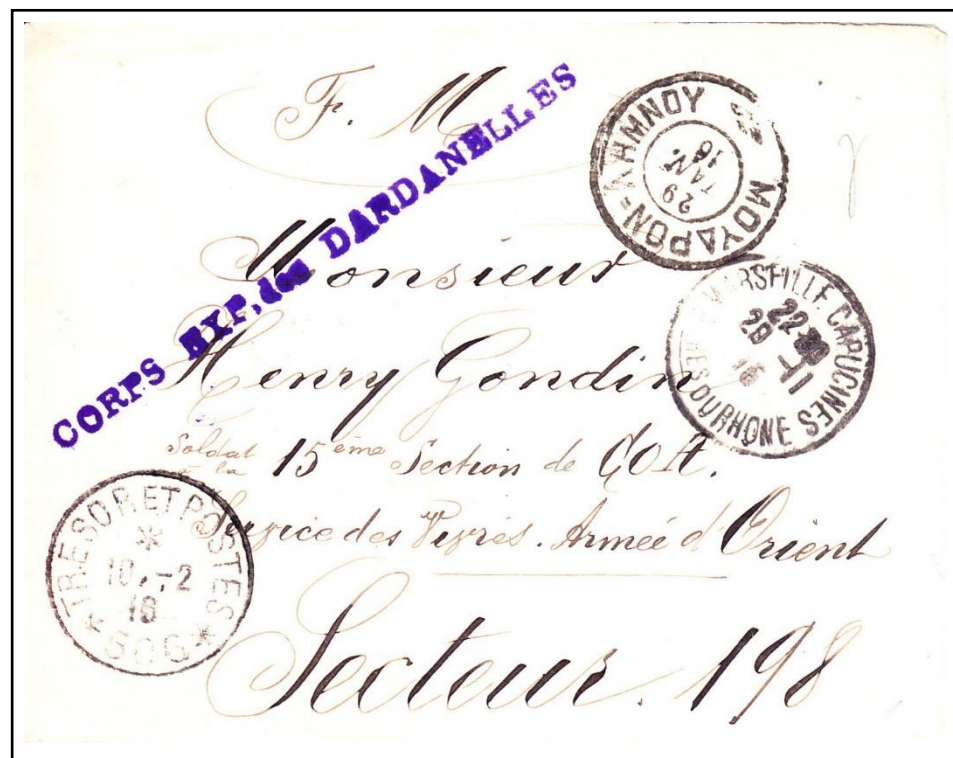 F. M.
CORPS EXP. des DARDANELLES
ΜΟΥΔΡΟΝ-ΛΗΜΝΟΥ
29
ΙΑΝ.
16
Monsieur
MARSEILLE CAPUCINES
22
28 -11
BES DU RHONE
Henry Gondin
Soldat
à la 15ème Section de COA.
Service des Vivres. Armée d'Orient
TRESOR ET POSTES
10 -2
16
506
Secteur. 198